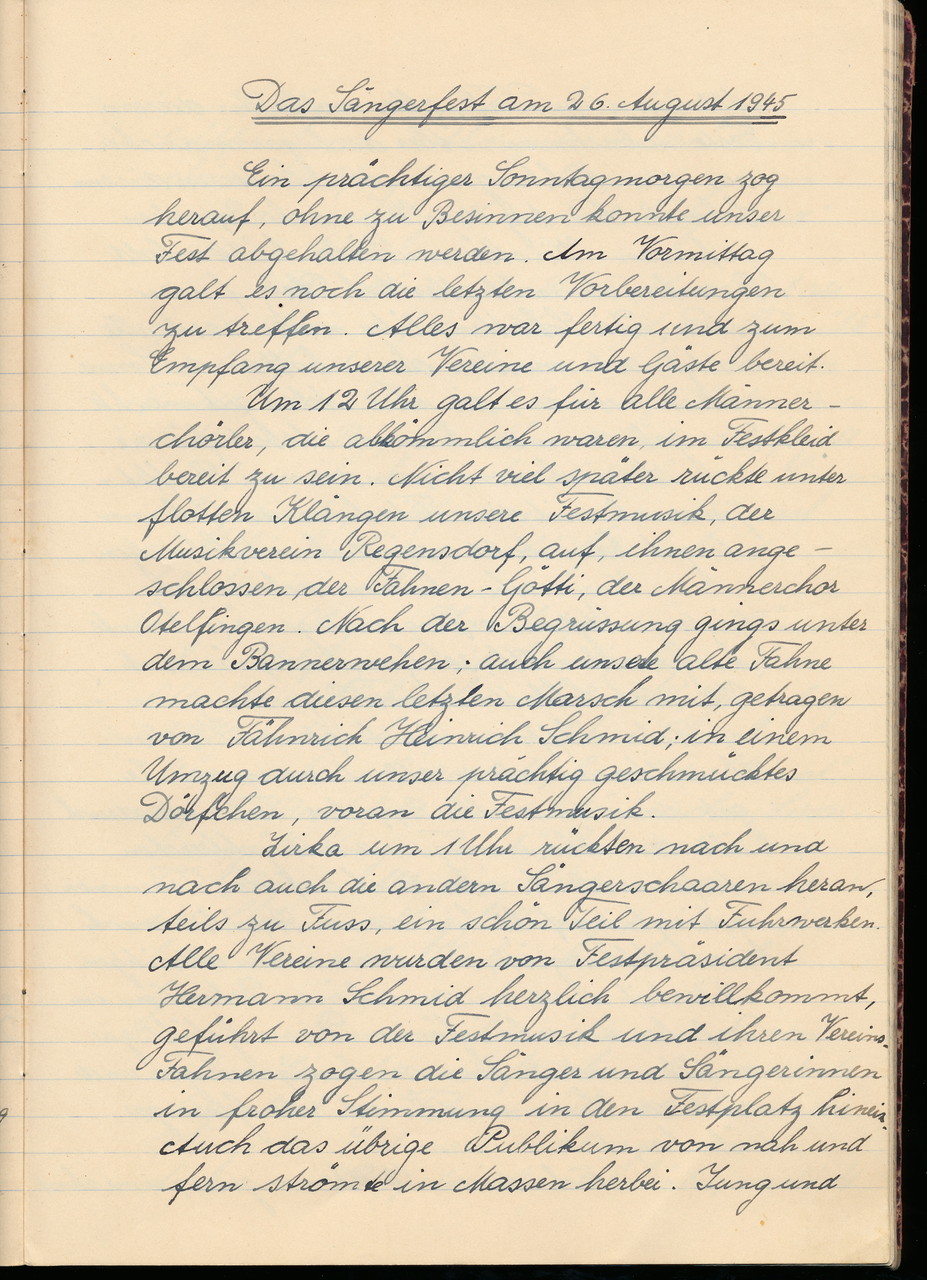 Das Sängerfest am 26. August 1945
Ein prächtiger Sonntagmorgen zog
herauf, ohne zu Besinnen konnte unser
Fest abgehalten werden. Am Vormittag
galt es noch die letzten Vorbereitungen
zu treffen. Alles war fertig und zum
Empfang unserer Vereine und Gäste bereit.
Um 12 Uhr galt es für alle Männer-
chörler, die abkömmlich waren, im Festkleid
bereit zu sein. Nicht viel später rückte unter
flotten Klängen unsere Festmusik, der
Musikverein Regensdorf, auf, ihnen ange-
schlossen, der Fahnen-Götti, der Männerchor
Otelfingen. Nach der Begrüssung gings unter
dem Bannerwehen; auch unsere alte Fahne
machte diesen letzten Marsch mit, getragen
von Fähnrich Heinrich Schmid; in einem
Umzug durch unser prächtig geschmücktes
Dörfchen, voran die Festmusik.
Zirka um 1 Uhr rückten nach und
nach auch die andern Sängerschaaren heran,
teils zu Fuss, ein schön Teil mit Fuhrwerken.
Alle Vereine wurden von Festpräsident
Hermann Schmid herzlich bewillkommt,
geführt von der Festmusik und ihren Vereins-
Fahnen zogen die Sänger und Sängerinnen
in froher Stimmung in den Festplatz hinein.
Auch das übrige Publikum von nah und
fern strömte in Massen herbei. Jung und